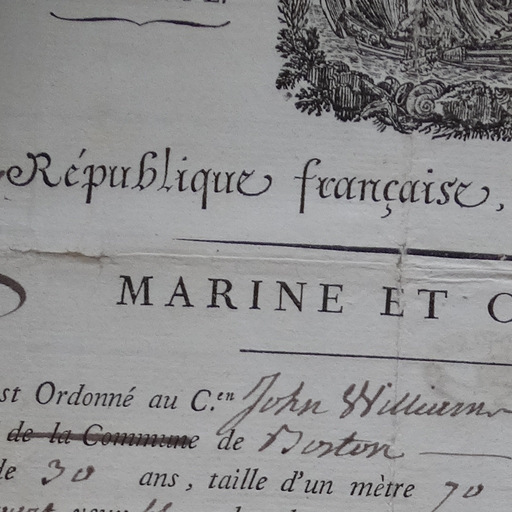 République française,
MARINE ET C
st Ordonné au C.en John Williams
de la Commune de Boston
de 30 ans, taille d'un mètre 70